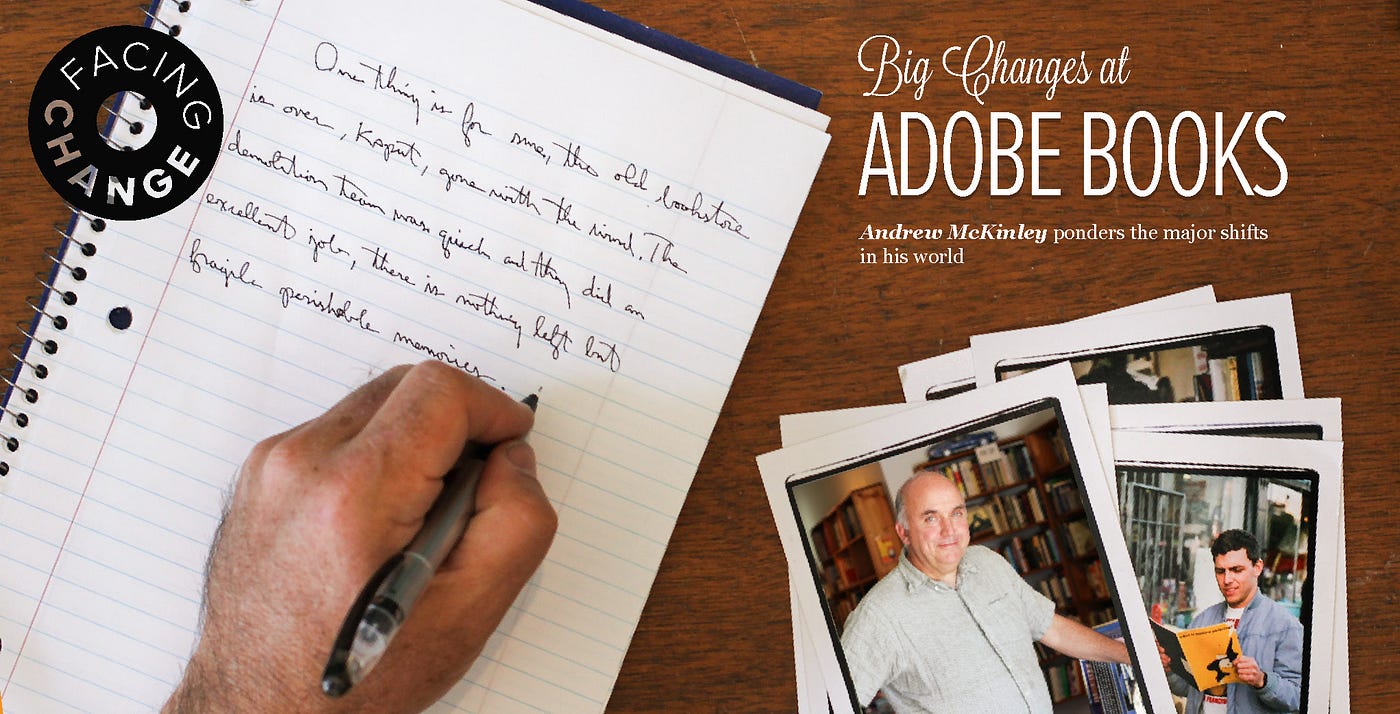 FACING
CHANGE
One thing is for sure, the old bookstore
is over, Kaput, gone with the wind. The
demolition team was quick and they did an
excellent job, there is nothing left but
fragile perishable memories.
Big Changes at
ADOBE BOOKS
Andrew McKinley ponders the major shifts
in his world